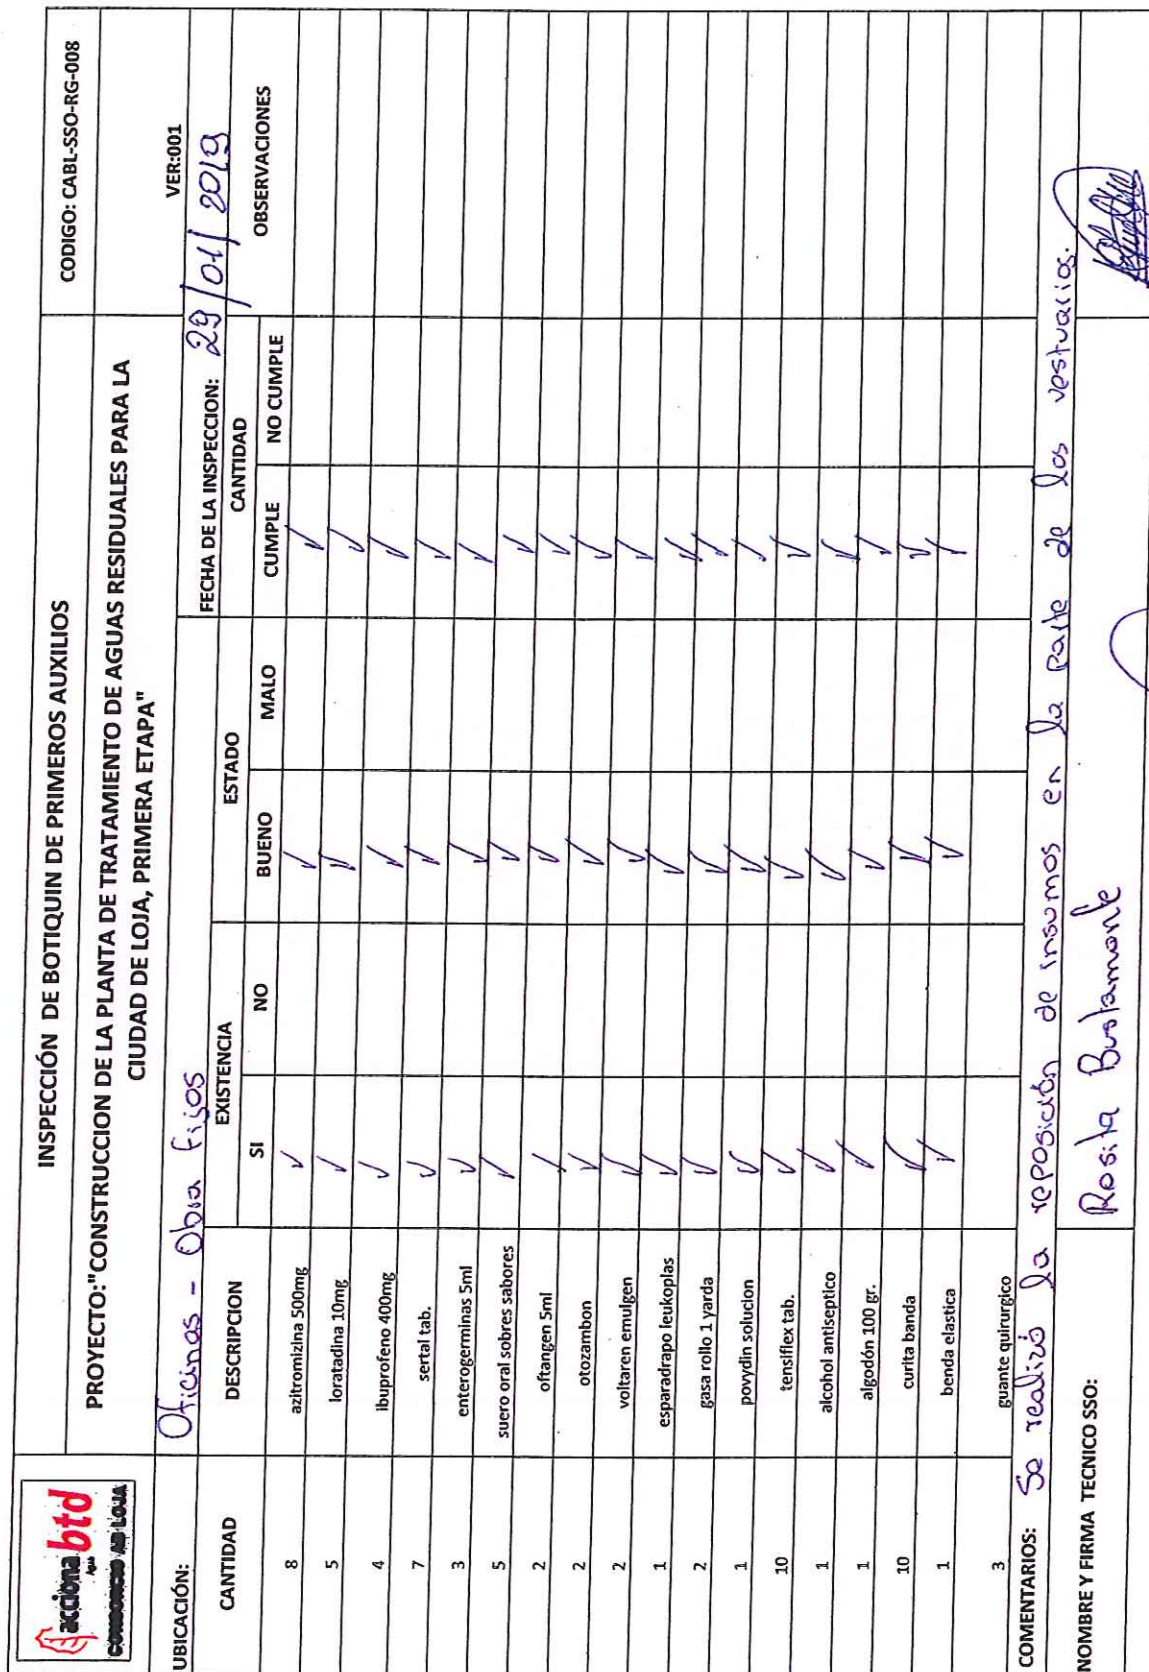 acciona btd
Agua
CONSORCIO AB LOJA
INSPECCIÓN DE BOTIQUIN DE PRIMEROS AUXILIOS
CODIGO: CABL-SSO-RG-008
PROYECTO:"CONSTRUCCION DE LA PLANTA DE TRATAMIENTO DE AGUAS RESIDUALES PARA LA
CIUDAD DE LOJA, PRIMERA ETAPA"
VER:001
UBICACIÓN: Oficinas - Obra Fijos
FECHA DE LA INSPECCION: 29/01/2019
CANTIDAD DESCRIPCION EXISTENCIA ESTADO CANTIDAD OBSERVACIONES
SI NO BUENO MALO CUMPLE NO CUMPLE
8 azitromizina 500mg ✓ ✓ ✓
5 loratadina 10mg ✓ ✓ ✓
4 ibuprofeno 400mg ✓ ✓ ✓
7 sertal tab. ✓ ✓ ✓
3 enterogerminas 5ml ✓ ✓ ✓
5 suero oral sobres sabores ✓ ✓ ✓
2 oftangen 5ml ✓ ✓ ✓
2 otozambon ✓ ✓ ✓
2 voltaren emulgen ✓ ✓ ✓
1 esparadrapo leukoplas ✓ ✓ ✓
2 gasa rollo 1 yarda ✓ ✓ ✓
1 povydin solucion ✓ ✓ ✓
10 tensiflex tab. ✓ ✓ ✓
1 alcohol antiseptico ✓ ✓ ✓
1 algodón 100 gr. ✓ ✓ ✓
10 curita banda ✓ ✓ ✓
1 benda elastica ✓ ✓ ✓
3 guante quirurgico
COMENTARIOS: Se realizó la reposición de insumos en la parte de los vestuarios.
NOMBRE Y FIRMA TECNICO SSO: Rosita Bustamante